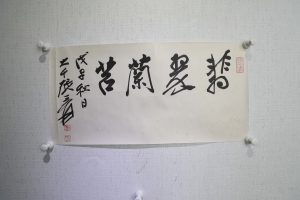 翡翠蘭苕
戊午秋日
大千張爰